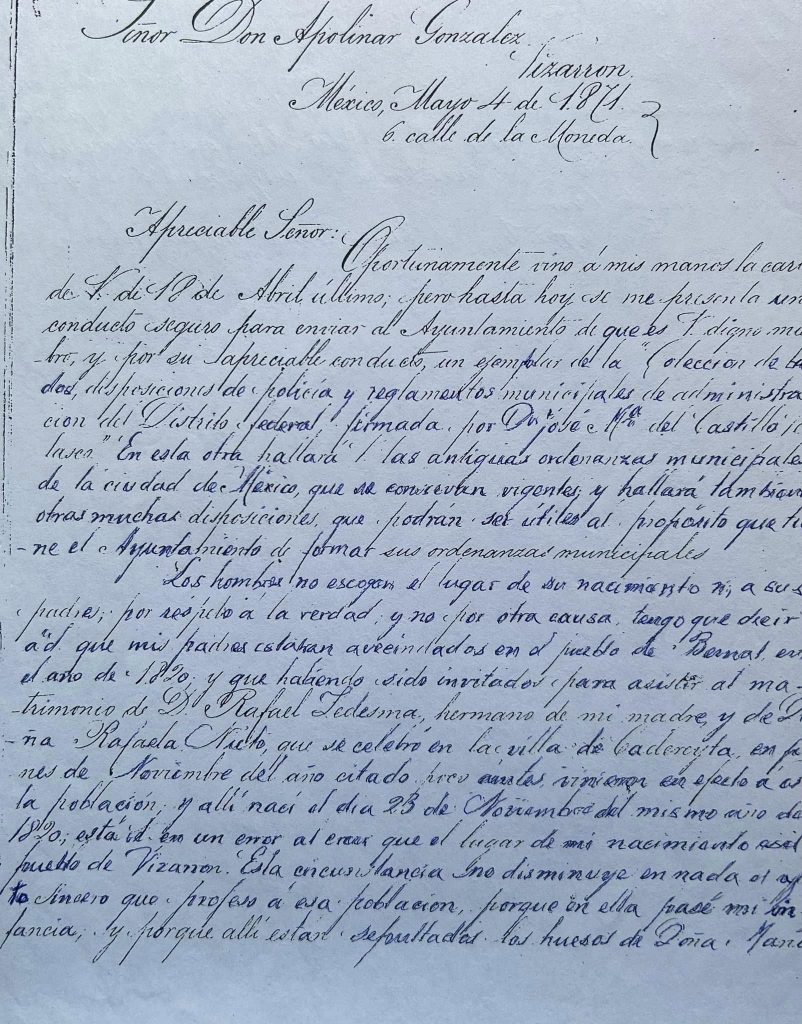 Señor Don Apolinar Gonzalez
Vizarron.
México, Mayo 4 de 1871.
6. calle de la Moneda.
Apreciable Señor:
Oportunamente vino á mis manos la car
de V. de 18 de Abril último; pero hasta hoy se me presenta un
conducto seguro para enviar al Ayuntamiento de que es V. digno m
bro, y por su apreciable conducto, un ejemplar de la "Coleccion de ba
dos, disposiciones de policía y reglamentos municipales de administra
cion del Distrito federal firmada por Dn José Ma del Castillo
lasco." En esta otra hallará V. las antiguas ordenanzas municipales
de la ciudad de México, que se conservan vigentes; y hallará tambien
otras muchas disposiciones, que podrán ser útiles al propósito que ti
-ne el Ayuntamiento de formar sus ordenanzas municipales
Los hombres no escogen el lugar de su nacimiento ni, a sus
padres; por respeto a la verdad, y no por otra causa, tengo que decir
que mis padres estaban avecindados en el pueblo de Bernal, en
el año de 1820; y que habiendo sido invitados para asistir al ma-
-trimonio de D. Rafael Ledesma, hermano de mi madre, y de D
-ña Rafaela Nieto, que se celebró en la villa de Cadereyta, en fi
nes de Noviembre del año citado pocos ántes, vinieron en efecto á
la población; y allí nací el dia 23 de Noviembre del mismo año de
1820; está ud. en un error al creer que el lugar de mi nacimiento es el
pueblo de Vizarron. Esta circunstancia no disminuye en nada el af
to sincero que profeso á esa población, porque en ella pasé mi in
fancia; y porque allí están sepultados los huesos de Doña